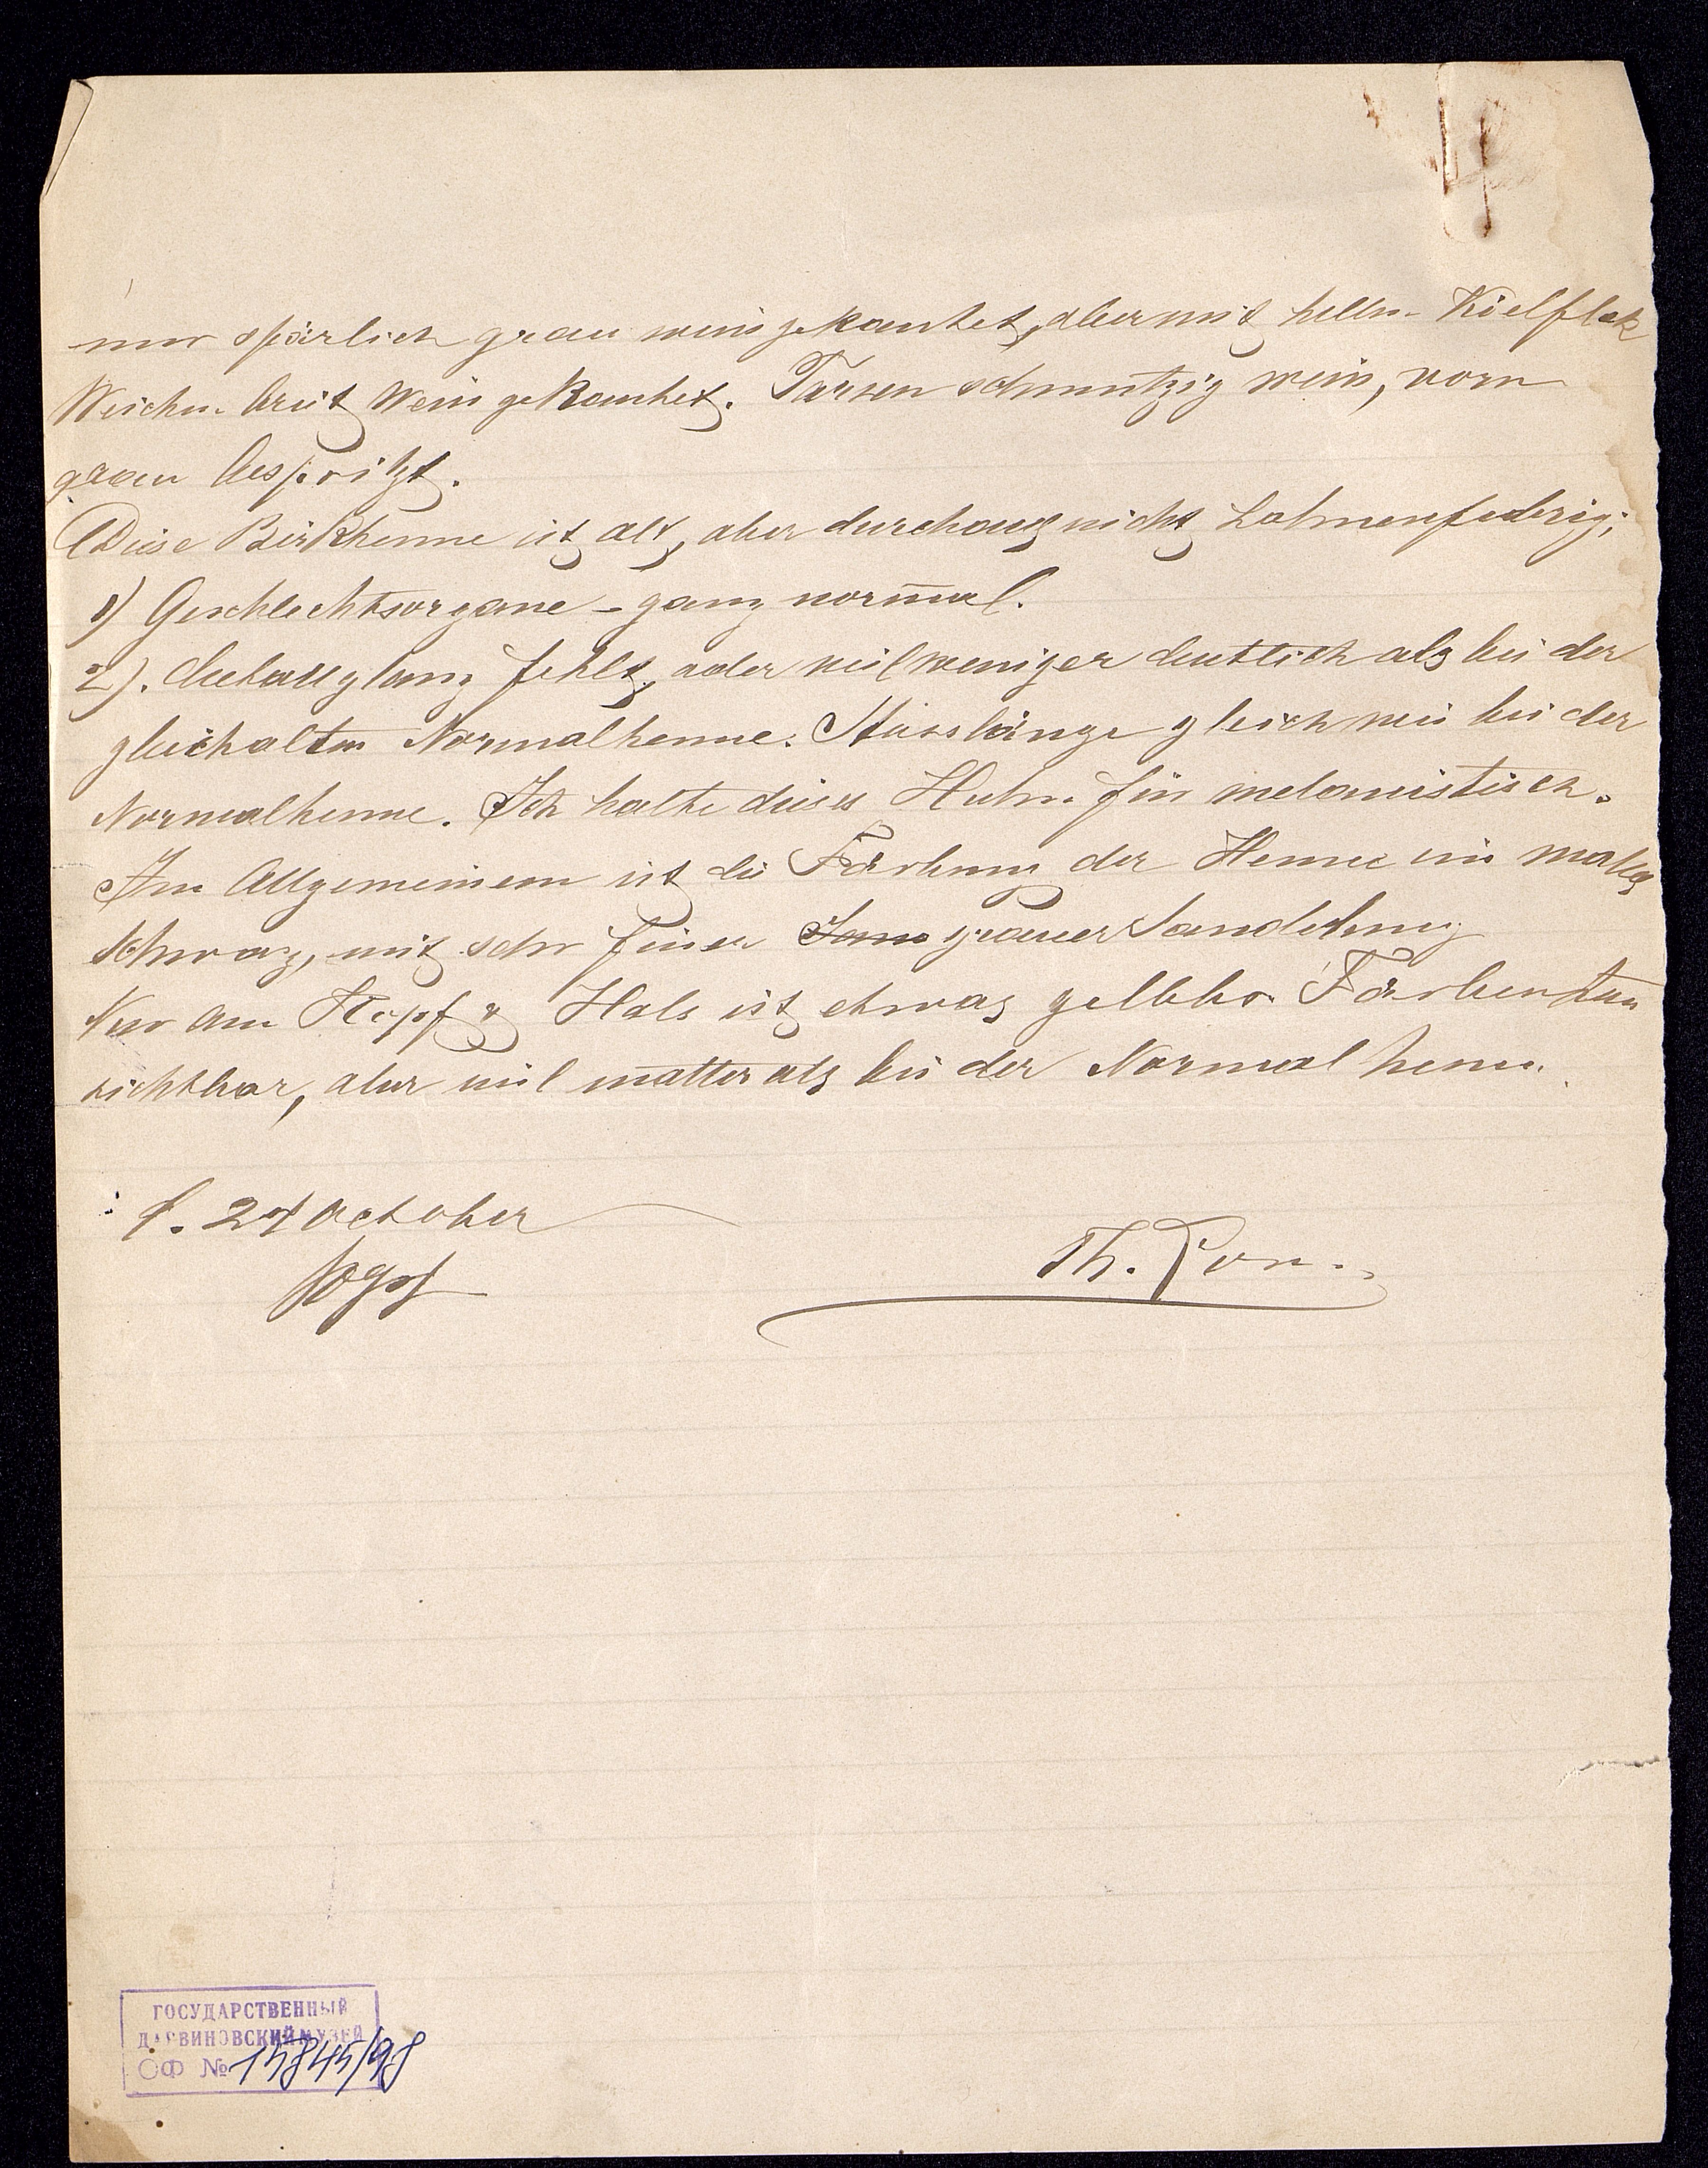 nur spärlich grau weis gekantet, aber mit hellen Kielflek
Weichen breit weis gekantet. Tarsen schmutzig weis, vorn
grau bespritzt.
Diese Birkhenne ist alt, aber durchaus nicht hahnenfedrig;
1) Geschlechtsorgane - ganz normal.
2). Metallglanz fehlt, oder viel weniger deutlich als bei der
gleichalten Normalhenne. Stosslänge gleich wie bei der
Normalhenne. Ich halte dieses Huhn für melanistisch.
Im Allgemeinem ist die Färbung der Henne ein mattes
Schwarz, mit sehr feiner grauer Sandelung
Nur am Kopf & Hals ist etwas gelber Farbenton
sichtbar, aber viel matter als bei der Normal henne.
d. 24 October
Th. Lor..
ГОСУДАРСТВЕННЫЙ
ДАРВИНОВСКИЙ МУЗЕЙ
ОФ № 15845/98